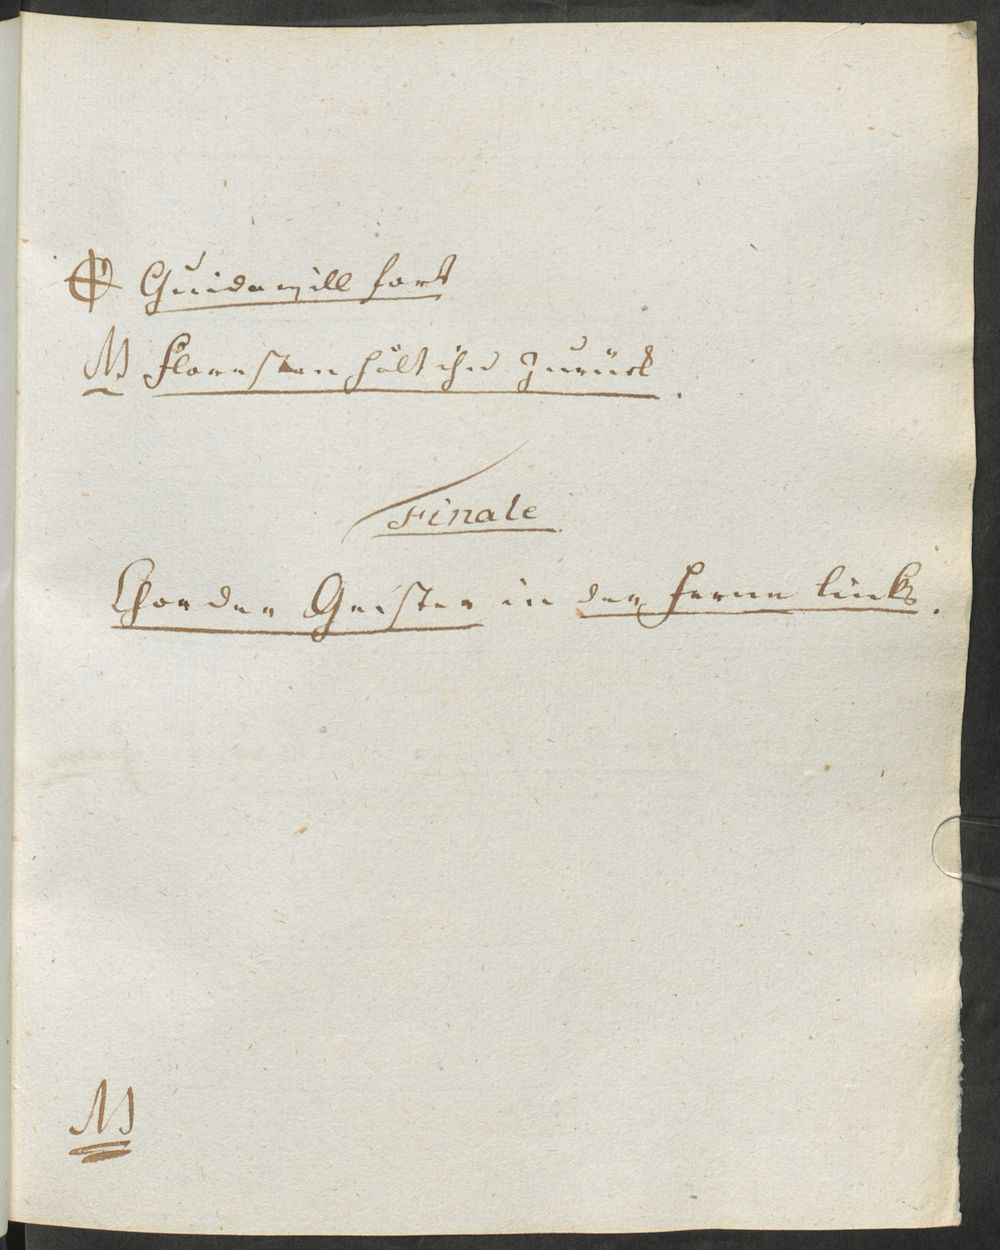 Guido will fort
NB Florestan hält ihn zurück.
Finale
Chor der Geister in der Ferne links.
NB